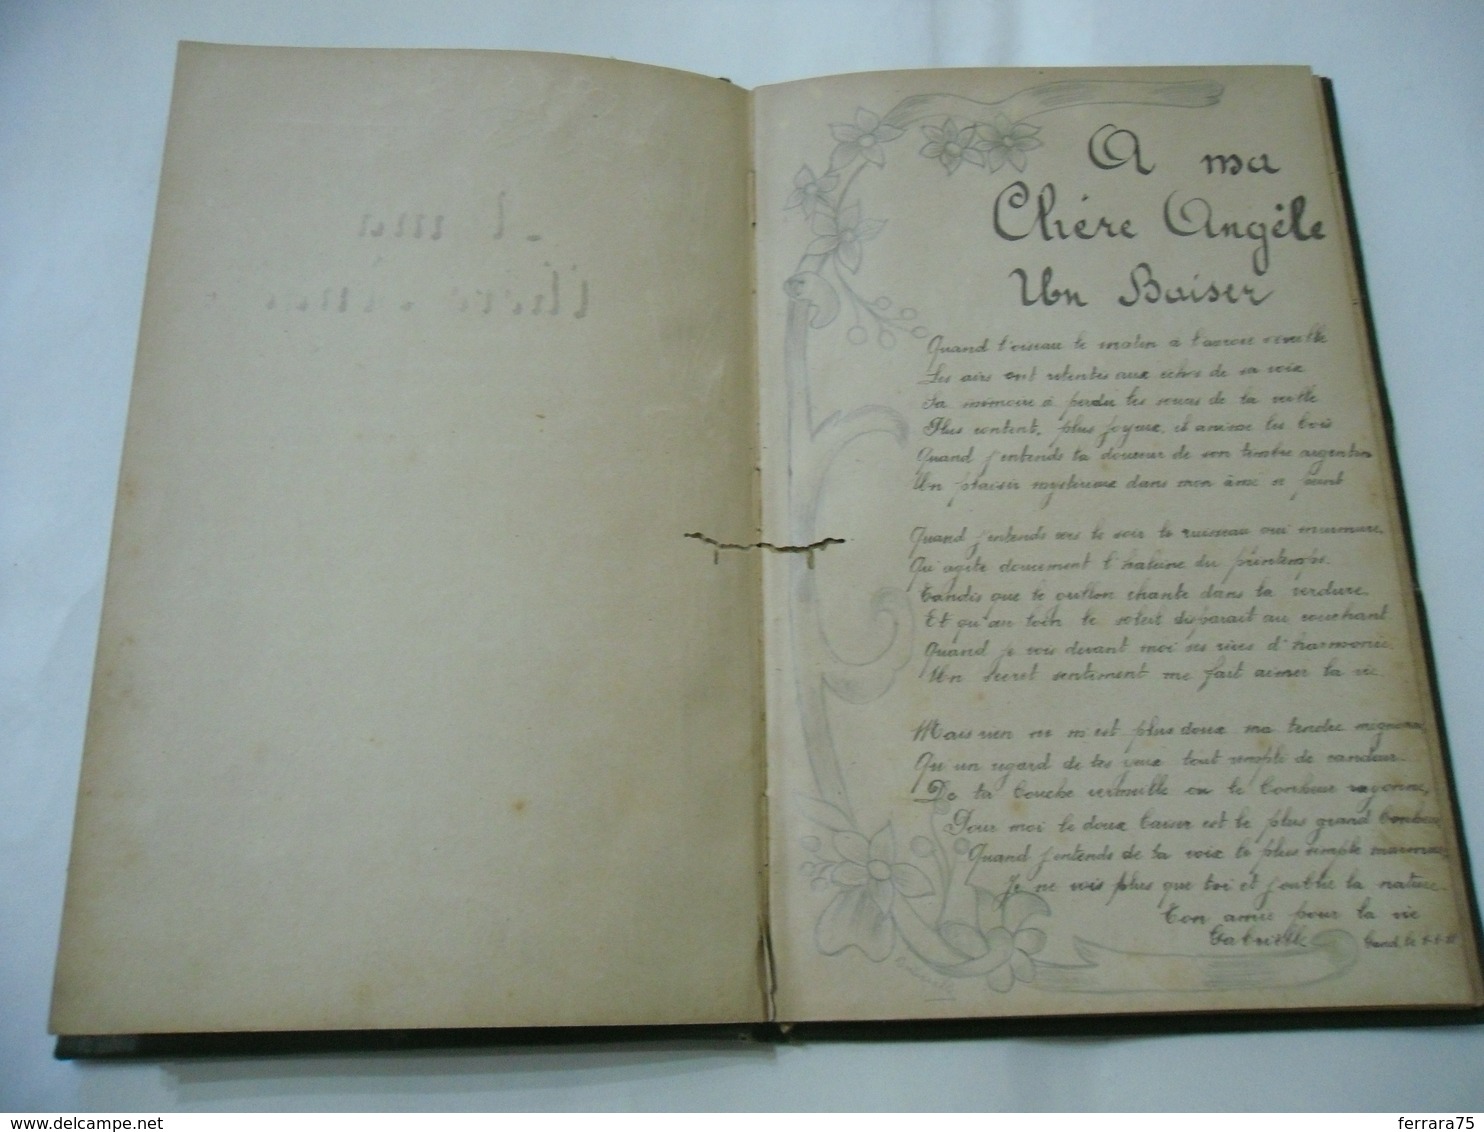 A ma
Chère Angèle
Un Baiser
Quand l'oiseau le matin à l'aurore réveille
Les airs ont retentis aux échos de sa voix
Sa mémoire à perdu les soucis de la veille
Plus content, plus joyeux, il anime les bois
Quand j'entends la douceur de son timbre argentin
Un plaisir mystérieux dans mon âme
Quand j'entends vers le soir le ruisseau qui murmure.
Qu'agite doucement l'haleine du printemps.
Tandis que le grillon chante dans la verdure.
Et qu'au loin le soleil disparait au couchant
Quand je vois devant moi ses rives d'harmonie.
Un secret sentiment me fait aimer la vie
Mais rien ne m'est plus doux ma tendre mignonne,
Qu'un regard de tes yeux tout rempli de candeur.
De ta bouche vermeille ou le bonheur rayonne,
Pour moi le doux baiser est le plus grand bonheur
Quand j'entends de ta voix le plus simple murmure,
Je ne vois plus que toi et j'oublie la nature.
Ton amie pour la vie
Gabrielle Gand, le
A ma
Chère
delcampe.net
ferrara75